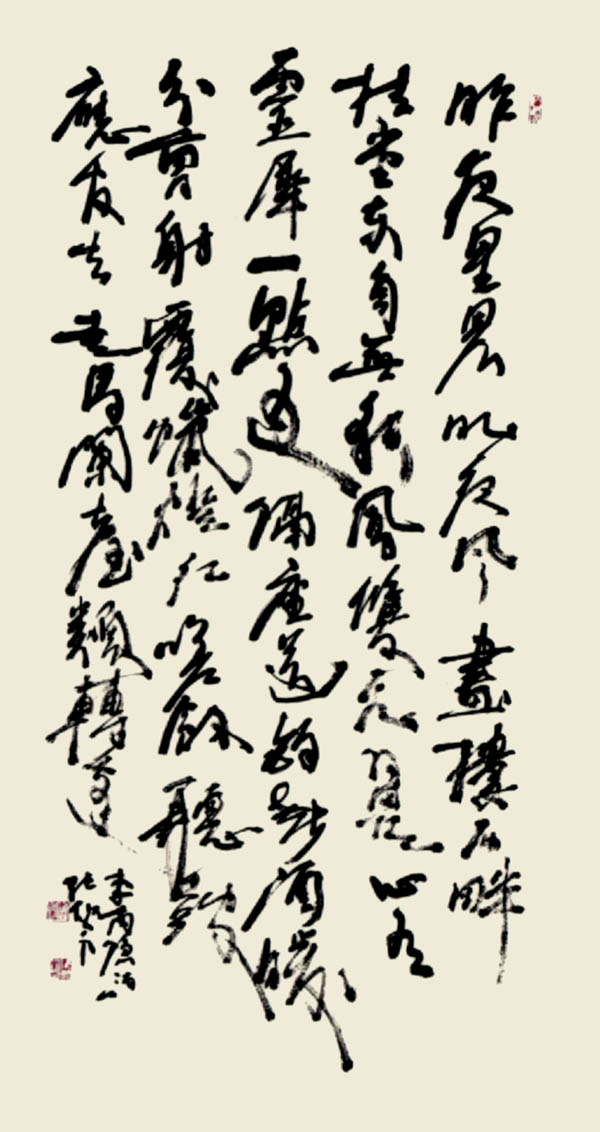 昨夜星辰昨夜风畫樓西畔
桂堂东身無彩鳳雙飛翼心有
靈犀一點通隔座送鈎春酒暖
分曹射覆蠟燈红嗟餘聽鼓
應官去走馬闌臺類轉蓬
李商隐诗